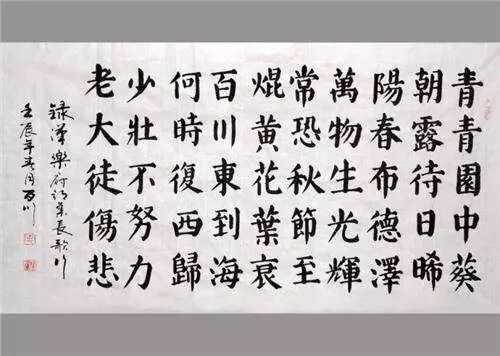 青青園中葵
朝露待日晞
陽春布德澤
萬物生光輝
常恐秋節至
焜黄花葉衰
百川東到海
何時復西歸
少壯不努力
老大徒傷悲
錄漢樂府詩集長歌行
壬辰年春月百川